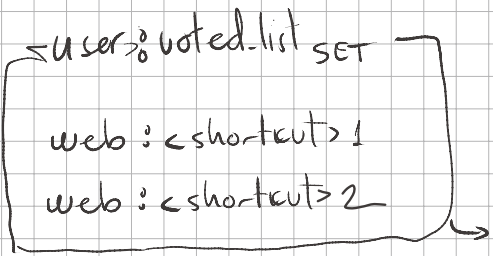 <user>:voted_list SET
web:<shortcut>1
web:<shortcut>2